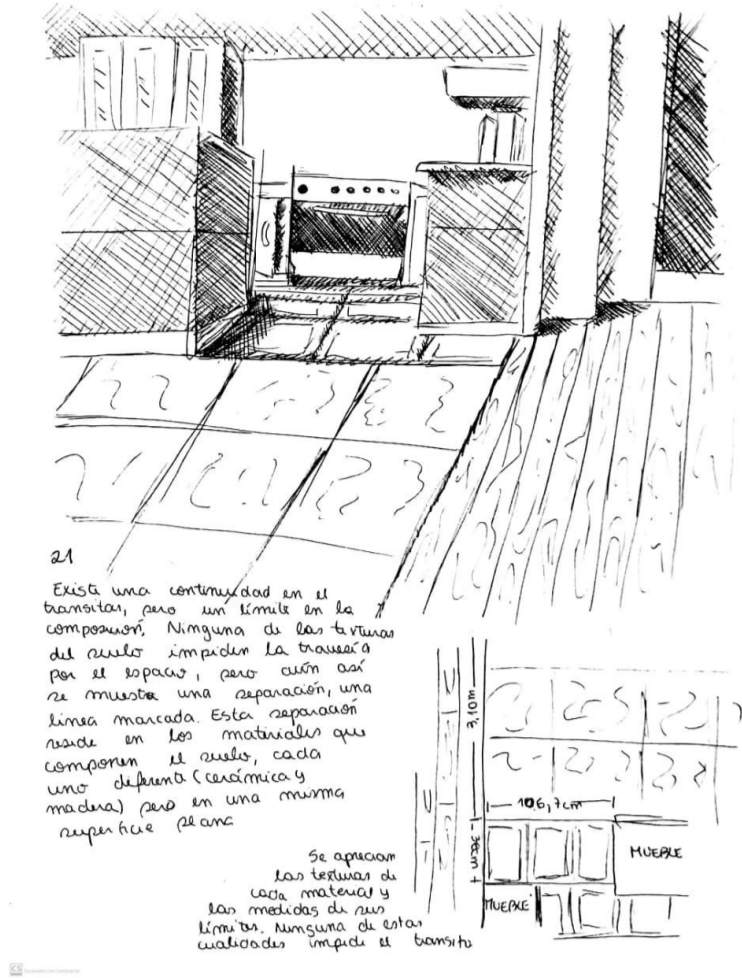 21
Existe una continuidad en el
transitar, pero un límite en la
composición. Ninguna de las texturas
del suelo impiden la travesía
por el espacio, pero aún así
se muestra una separación, una
línea marcada. Esta separación
reside en los materiales que
componen el suelo, cada
uno diferente (cerámica y
madera) pero en una misma
superficie plana
Se aprecian
las texturas de
cada material y
las medidas de sus
límites. Ninguna de estas
cualidades impide el transito
3,10m
106,7cm
30cm
MUEBLE
MUEBLE
CS